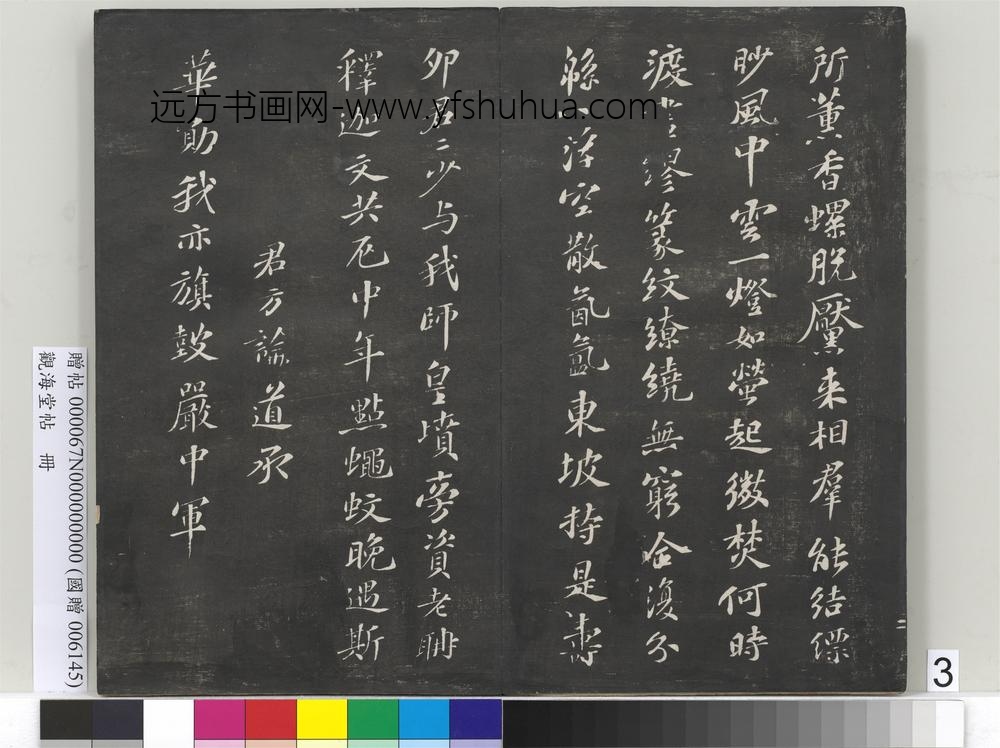 所薰香螺脫黶來相羣能結縹
眇風中雲一燈如螢起微焚何時
渡盡繆篆紋繚繞無窮合復分
緜〻浮空散氤氳東坡持是壽
卯君〻少与我師皇墳旁資老聃
釋迦文共厄中年點蠅蚊晚遇斯
君方論道承
華勛我亦旗鼓嚴中軍
远方书画网-www.yfshuhua.com
贈帖 000067N000000000 (國贈 006145)
觀海堂帖 冊
3